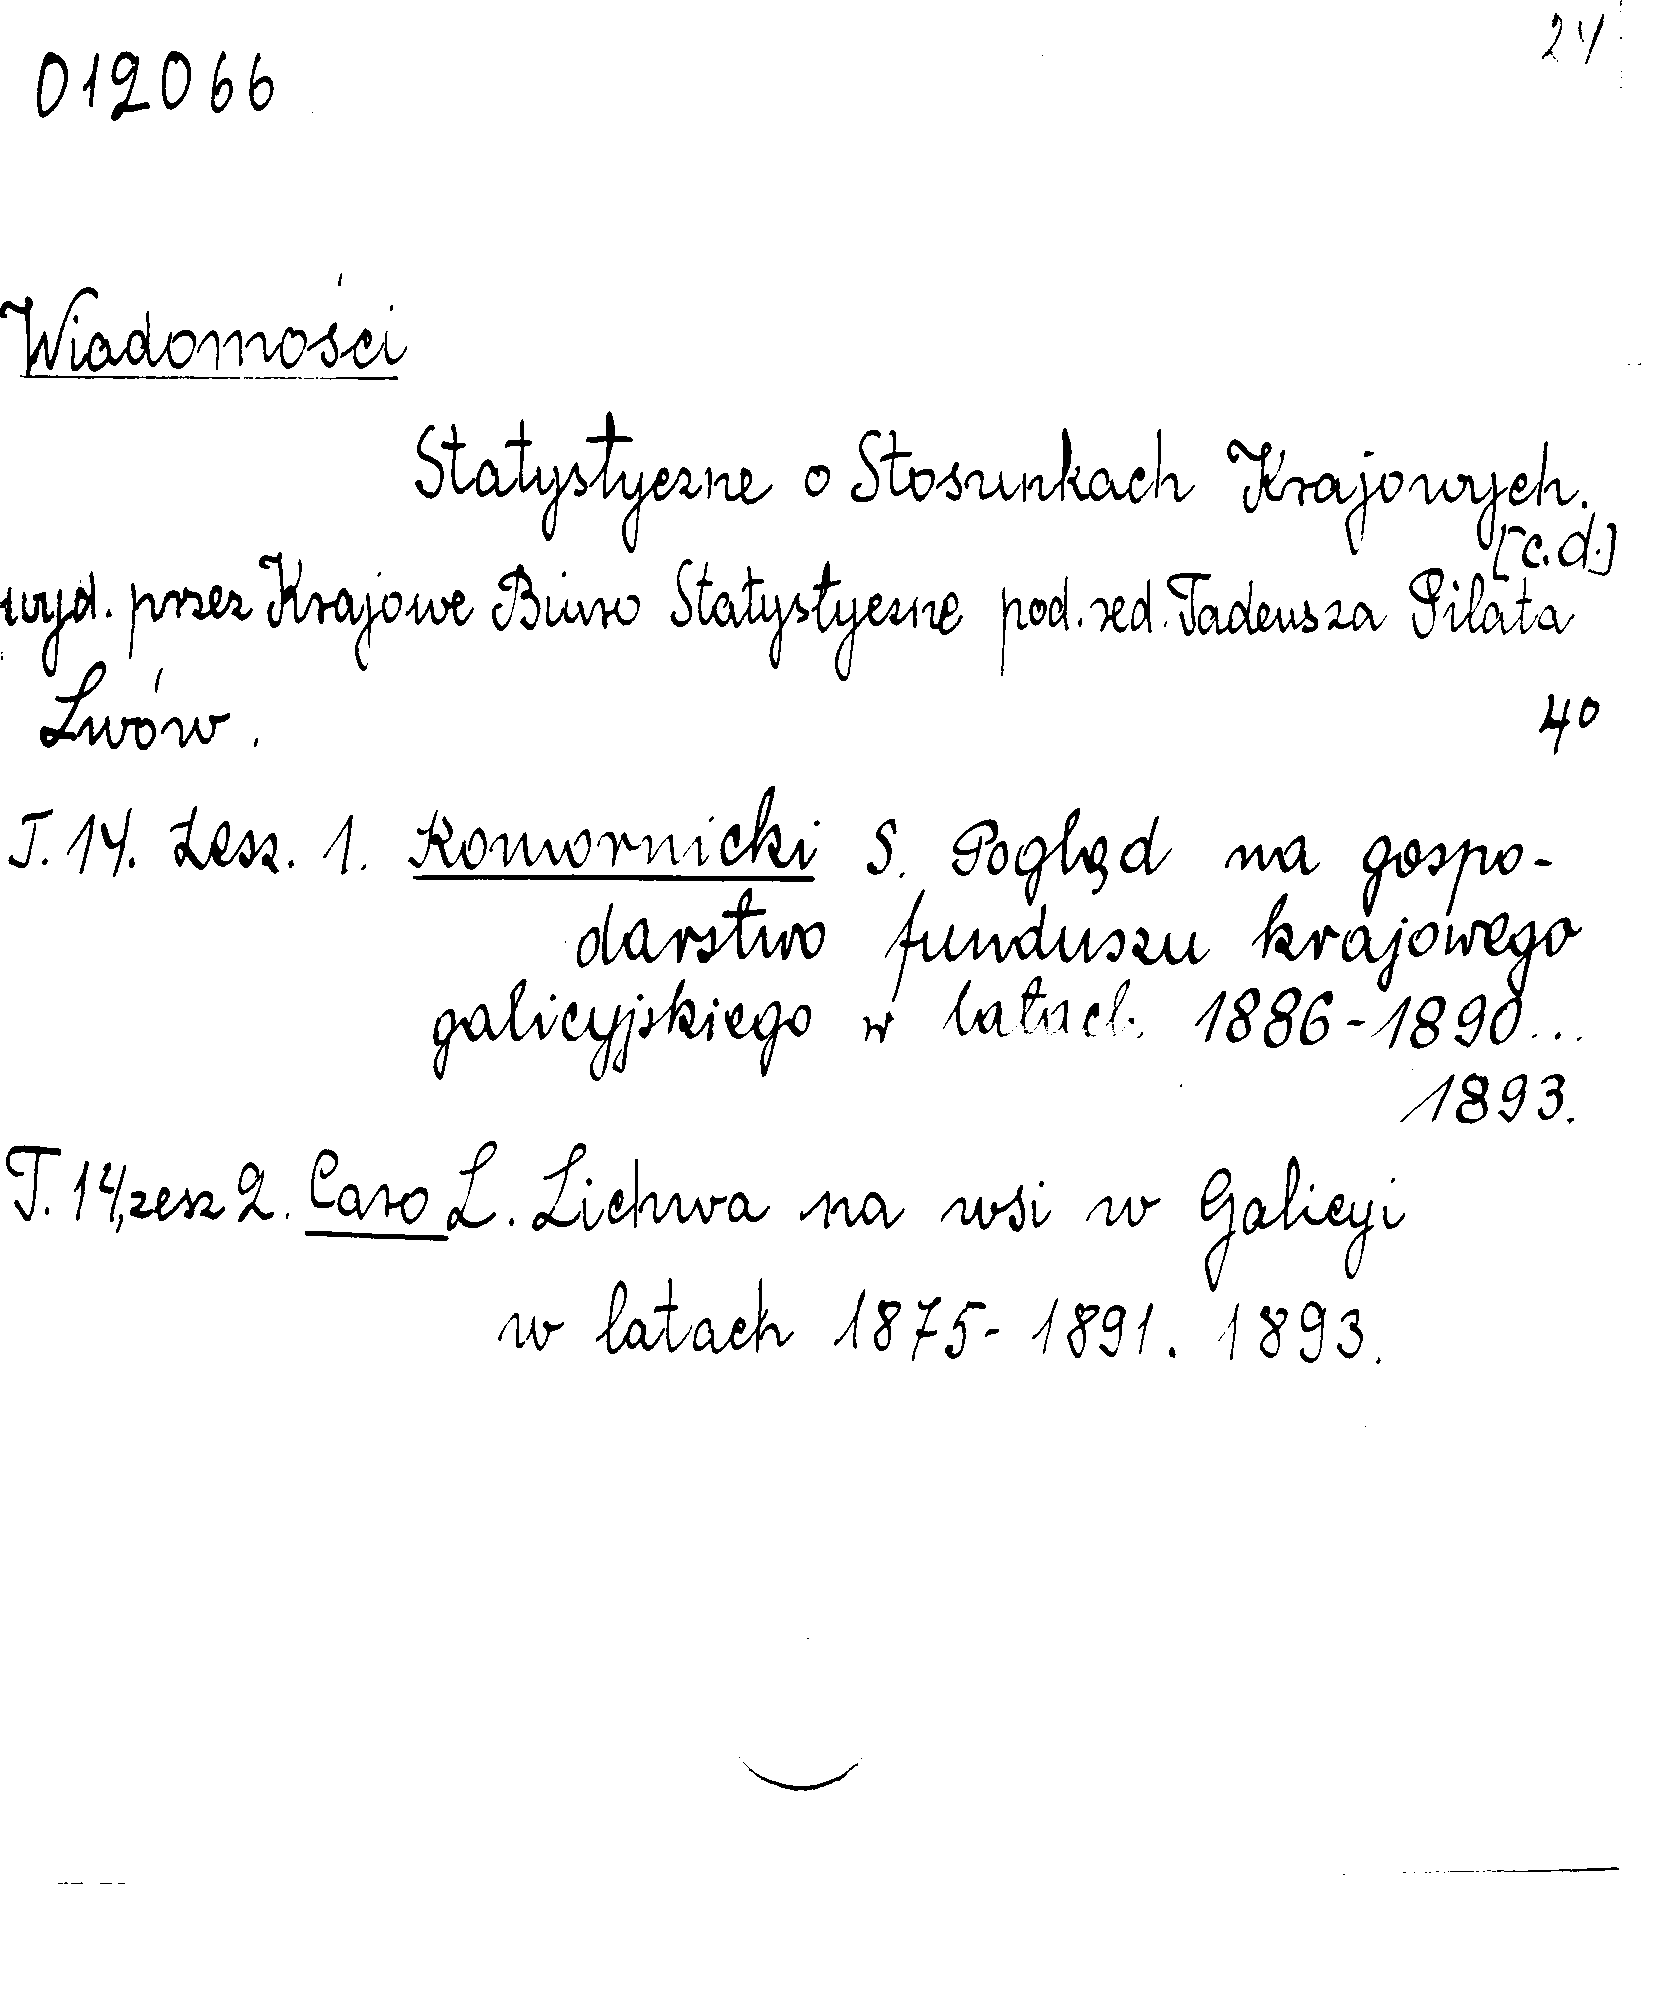 24
012066
Wiadomości
Statystyczne o Stosunkach Krajowych.
[c.d.]
wyd. przez Krajowe Biuro Statystyczne pod. red. Tadeusza Pilata
Lwów. 4°
T. 14. Zesz. 1. Komornicki S. Pogląd na gospo-
darstwo funduszu krajowego
galicyjskiego w latach 1886-1890...
1893.
T. 14, zesz 2. Caro L. Lichwa na wsi w Galicyi
w latach 1875-1891. 1893.